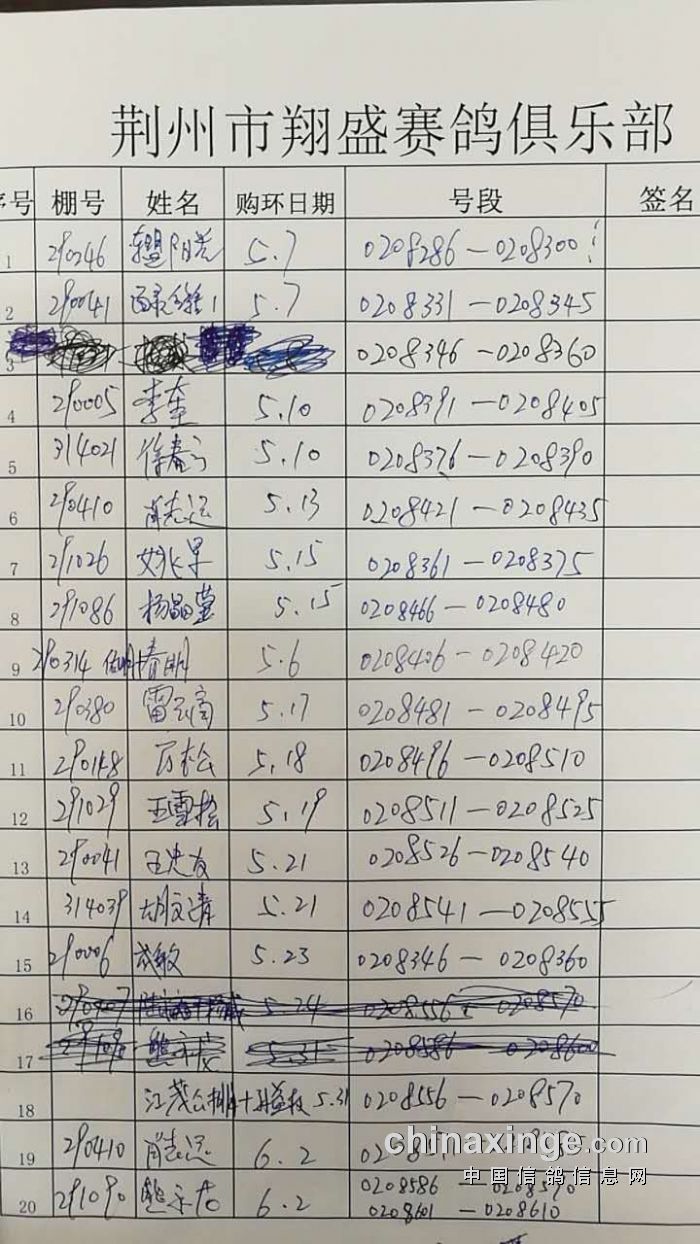 荆州市翔盛赛鸽俱乐部
序号 棚号 姓名 购环日期 号段 签名
1 290246 5.7 0208286—0208300
2 290041 5.7 0208331—0208345
3 0208346—0208360
4 290005 李奎 5.10 0208391—0208405
5 314021 徐春 5.10 0208376—0208390
6 290410 肖志远 5.13 0208421—0208435
7 291026 姚早 5.15 0208361—0208375
8 291086 杨晶莹 5.15 0208466—0208480
9 290314 春明 5.6 0208406—0208420
10 290380 雷 5.17 0208481—0208495
11 290148 万松 5.18 0208496—0208510
12 291029 王雪松 5.19 0208511—0208525
13 290041 王忠友 5.21 0208526—0208540
14 314039 胡文清 5.21 0208541—0208555
15 290006 敏 5.23 0208346—0208360
16 5.24 0208556 0208570
17 5.31 0208586 0208600
18 江茂公棚 5.31 0208556—0208570
19 290410 肖志远 6.2
20 291090 熊 6.2 0208586—0208590
0208601—0208610
chinaxinge.com
中国信鸽信息网